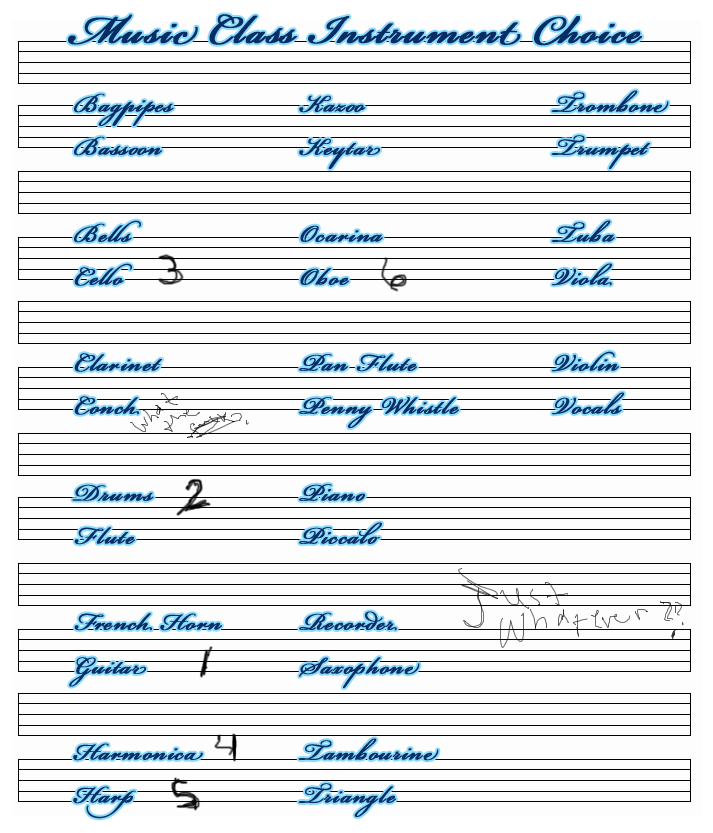 Music Class Instrument Choice
Bagpipes Kazoo Trombone
Bassoon Keytar Trumpet
Bells Ocarina Tuba
Cello 3 Oboe 6 Viola
Clarinet Pan Flute Violin
Conch Penny Whistle Vocals
What
the
Drums 2 Piano
Flute Piccalo
Just
Whatever??
French Horn Recorder
Guitar 1 Saxophone
Harmonica 4 Tambourine
Harp 5 Triangle